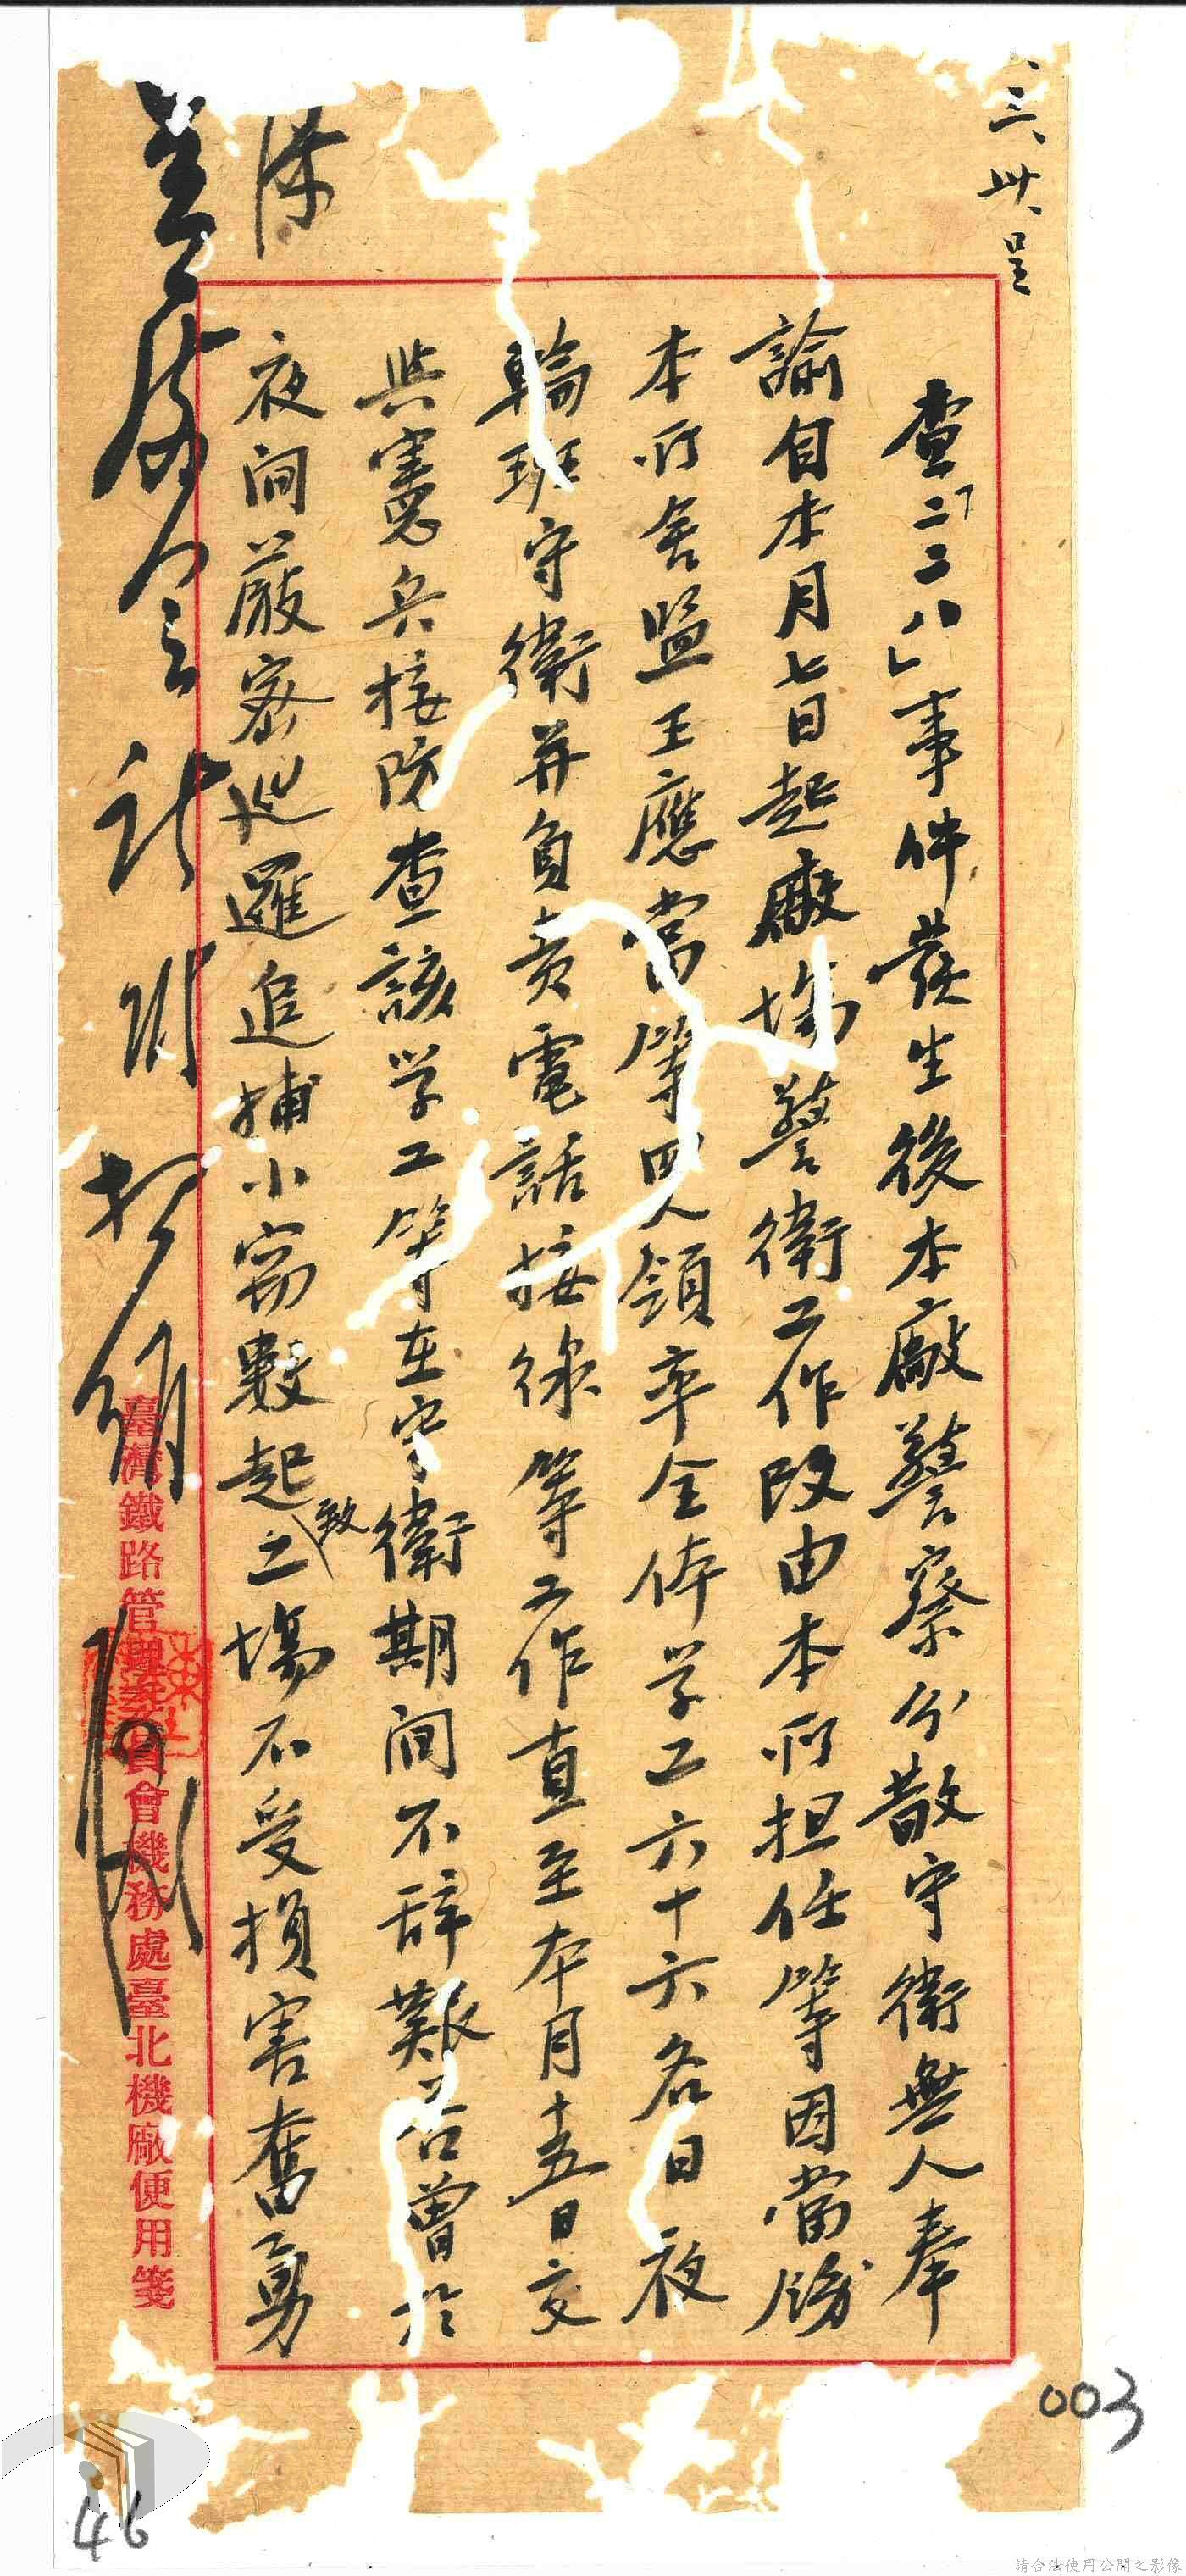 三、卅、呈
查「二二八」事件發生後本廠警察分散守衛無人奉
諭自本月七日起廠場警衛工作改由本所担任等因當飭
本所舍監王應當等四人領率全体学工六十六名日夜
輪班守衛并負責電話接線等工作直至本月十五日交
與憲兵接防查該学工等在守衛期間不辞艱苦曾於
夜間嚴密巡邏追捕小窃數起致工場不受損害奮勇
臺灣鐵路管理委員會機務處臺北機廠便用箋
003
46
請合法使用公開之影像